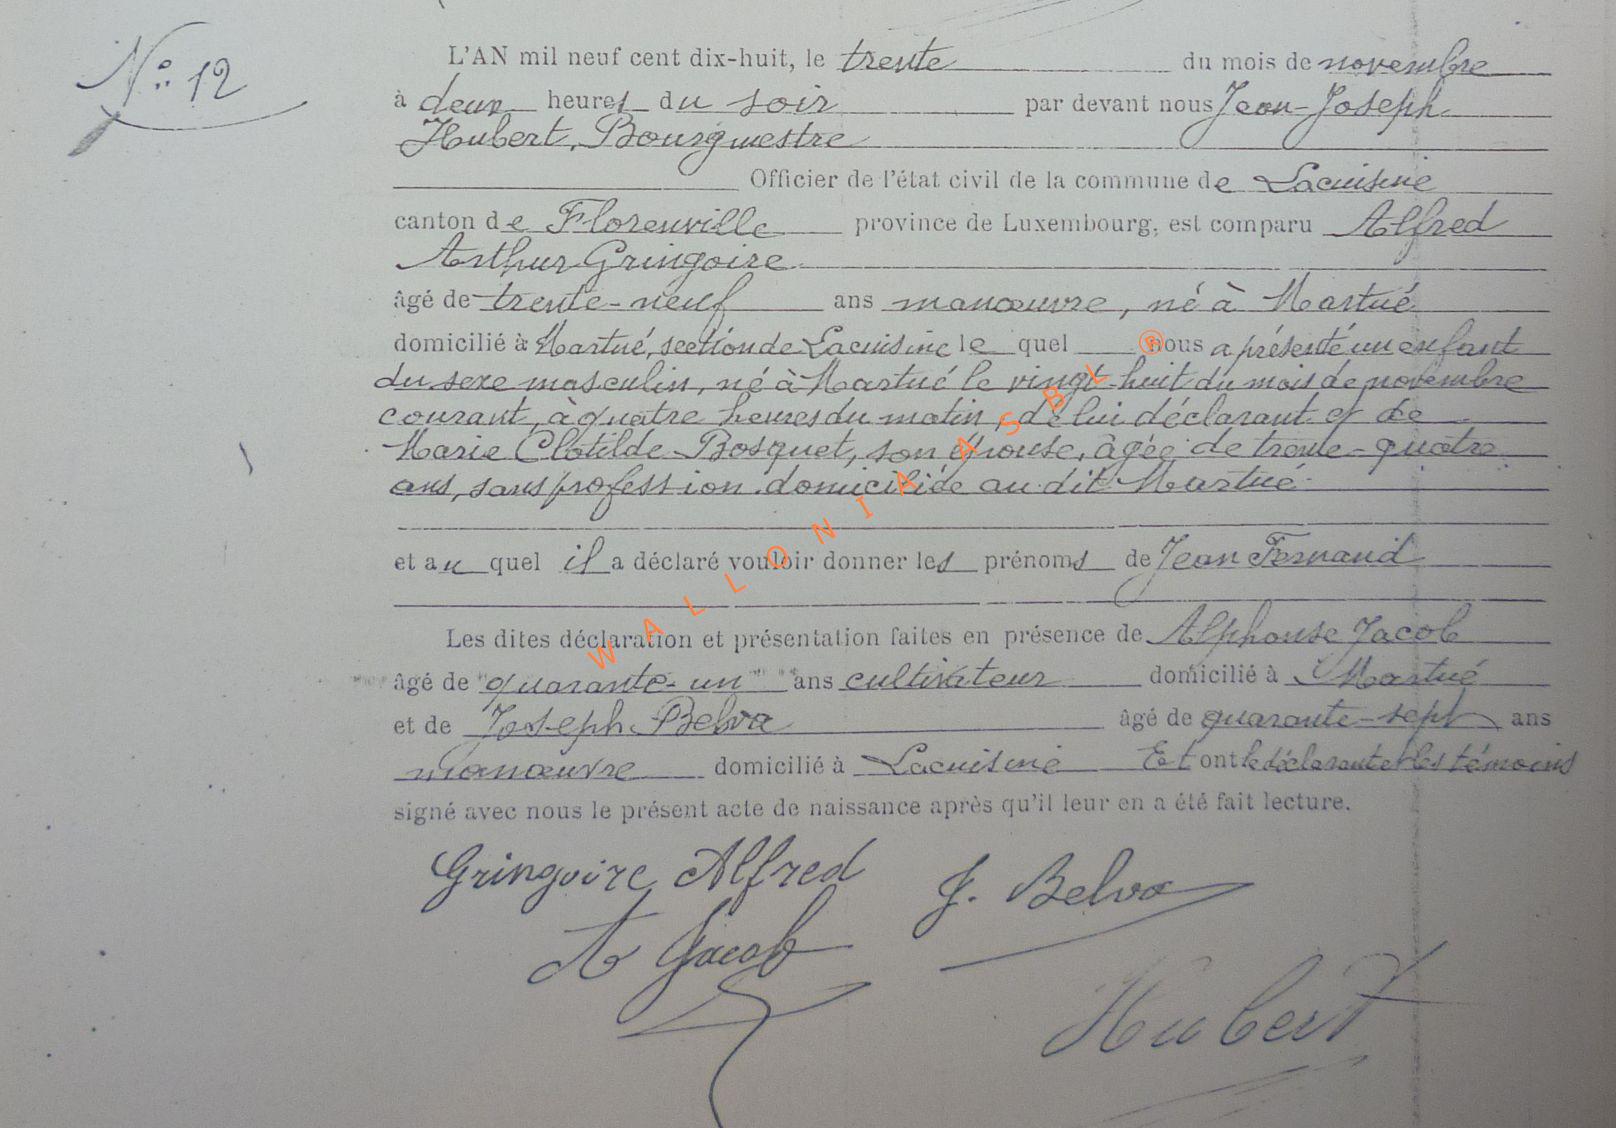 N° 12
L'AN mil neuf cent dix-huit, le trente du mois de novembre
à deux heures du soir par devant nous Jean-Joseph
Hubert, Bourgmestre
Officier de l'état civil de la commune de Lacuisine
canton de Florenville province de Luxembourg, est comparu Alfred
Arthur Gringoire
âgé de trente-neuf ans manœuvre, né à Martué
domicilié à Martué, section de Lacuisine le quel nous a présenté un enfant
du sexe masculin, né à Martué le vingt-huit du mois de novembre
courant, à quatre heures du matin, de lui déclarant et de
Marie Clotilde Bosquet, son épouse, âgée de trente-quatre
ans, sans profession domiciliée au dit Martué
et au quel il a déclaré vouloir donner les prénoms de Jean Fernand
Les dites déclaration et présentation faites en présence de Alphonse Jacob
âgé de quarante-un ans cultivateur domicilié à Martué
et de Joseph Belva âgé de quarante-sept ans
manœuvre domicilié à Lacuisine Et ont le déclarant et les témoins
signé avec nous le présent acte de naissance après qu'il leur en a été fait lecture.
Gringoire Alfred
J. Belva
A Jacob
Hubert
WALLONIA ASBL ®